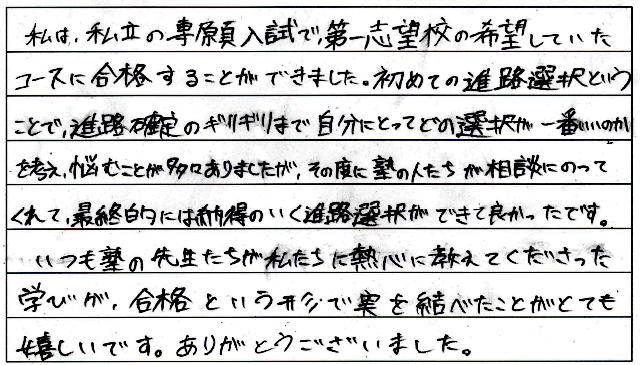 私は、私立の専願入試で、第一志望校の希望していた
コースに合格することができました。初めての進路選択という
ことで、進路確定のギリギリまで自分にとってどの選択が一番いいのか
を考え、悩むことが多々ありましたが、その度に塾の人たちが相談にのって
くれて、最終的には納得のいく進路選択ができて良かったです。
いつも塾の先生たちが私たちに熱心に教えてくださった
学びが、合格という形で実を結べたことがとても
嬉しいです。ありがとうございました。